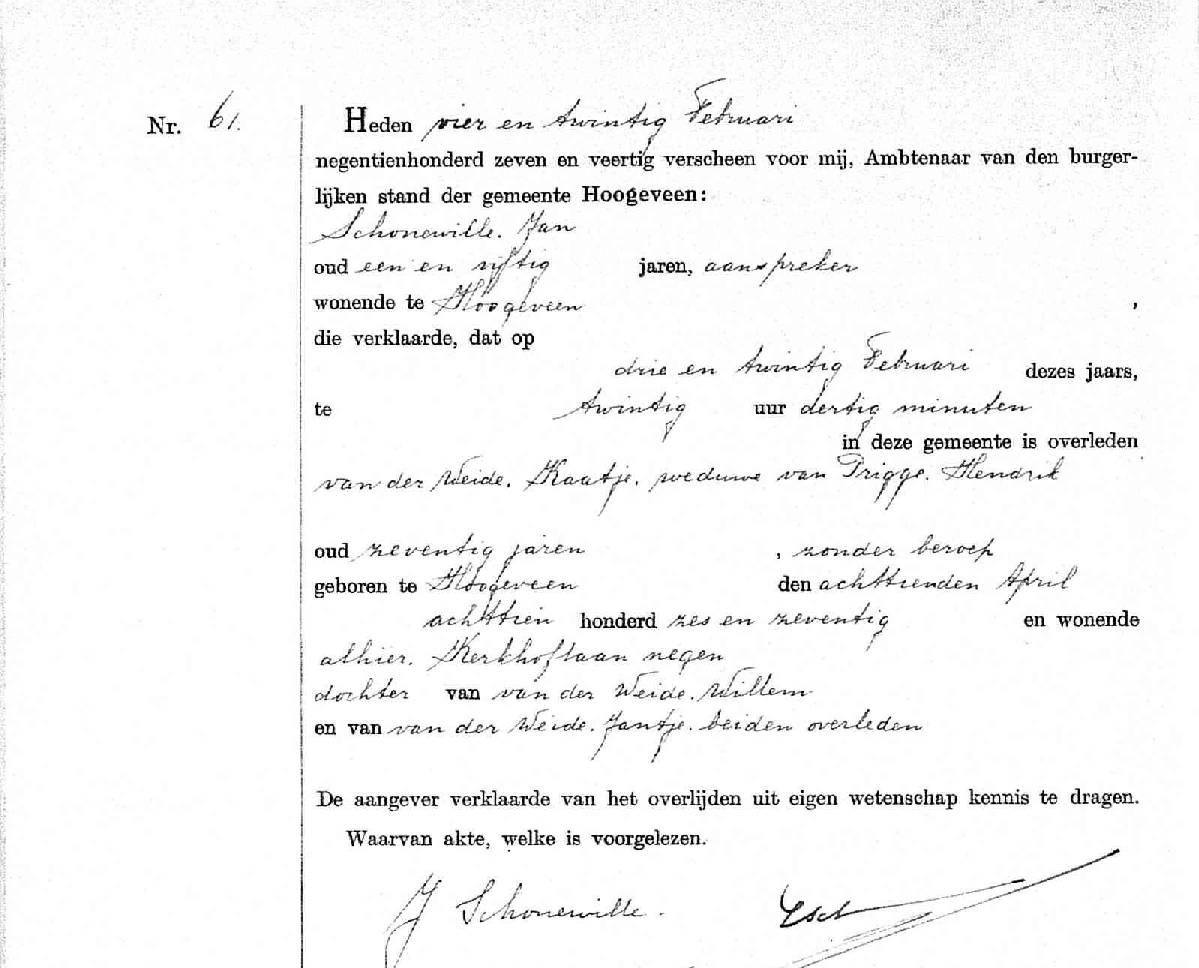 Nr. 61. Heden vier en twintig Februari
negentienhonderd zeven en veertig verscheen voor mij, Ambtenaar van den burger-
lijken stand der gemeente Hoogeveen:
Schonewille. Jan
oud een en vijftig jaren, aanspreker
wonende te Hoogeveen ,
die verklaarde, dat op
drie en twintig Februari dezes jaars,
te twintig uur dertig minuten
in deze gemeente is overleden
van der Weide. Kaatje. weduwe van Prigge. Hendrik
oud zeventig jaren , zonder beroep
geboren te Hoogeveen den achttienden April
achttien honderd zes en zeventig en wonende
alhier. Kerkhoflaan negen
dochter van van der Weide. Willem
en van van der Weide. Jantje. beiden overleden
De aangever verklaarde van het overlijden uit eigen wetenschap kennis te dragen.
Waarvan akte, welke is voorgelezen.
J Schonewille.